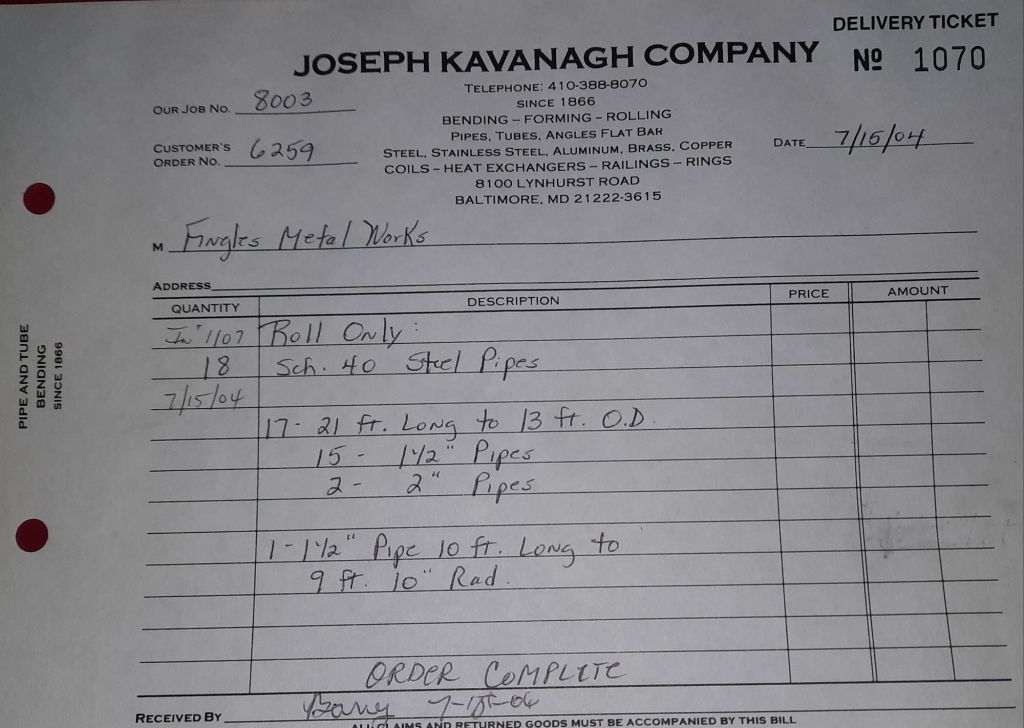 DELIVERY TICKET
JOSEPH KAVANAGH COMPANY
Nº 1070
TELEPHONE: 410-388-8070
SINCE 1866
OUR JOB NO. 8003
BENDING – FORMING – ROLLING
PIPES, TUBES, ANGLES FLAT BAR
DATE 7/15/04
CUSTOMER'S
ORDER NO. 6259
STEEL, STAINLESS STEEL, ALUMINUM, BRASS, COPPER
COILS – HEAT EXCHANGERS – RAILINGS – RINGS
8100 LYNHURST ROAD
BALTIMORE, MD 21222-3615
M Fingles Metal Works
ADDRESS
QUANTITY DESCRIPTION PRICE AMOUNT
1107 Roll Only:
18 Sch. 40 Steel Pipes
7/15/04
17- 21 ft. Long to 13 ft. O.D.
15 - 1 1/2" Pipes
2 - 2" Pipes
1 - 1 1/2" Pipe 10 ft. Long to
9 ft. 10" Rad.
ORDER COMPLETE
RECEIVED BY
ALL CLAIMS AND RETURNED GOODS MUST BE ACCOMPANIED BY THIS BILL
PIPE AND TUBE
BENDING
SINCE 1866